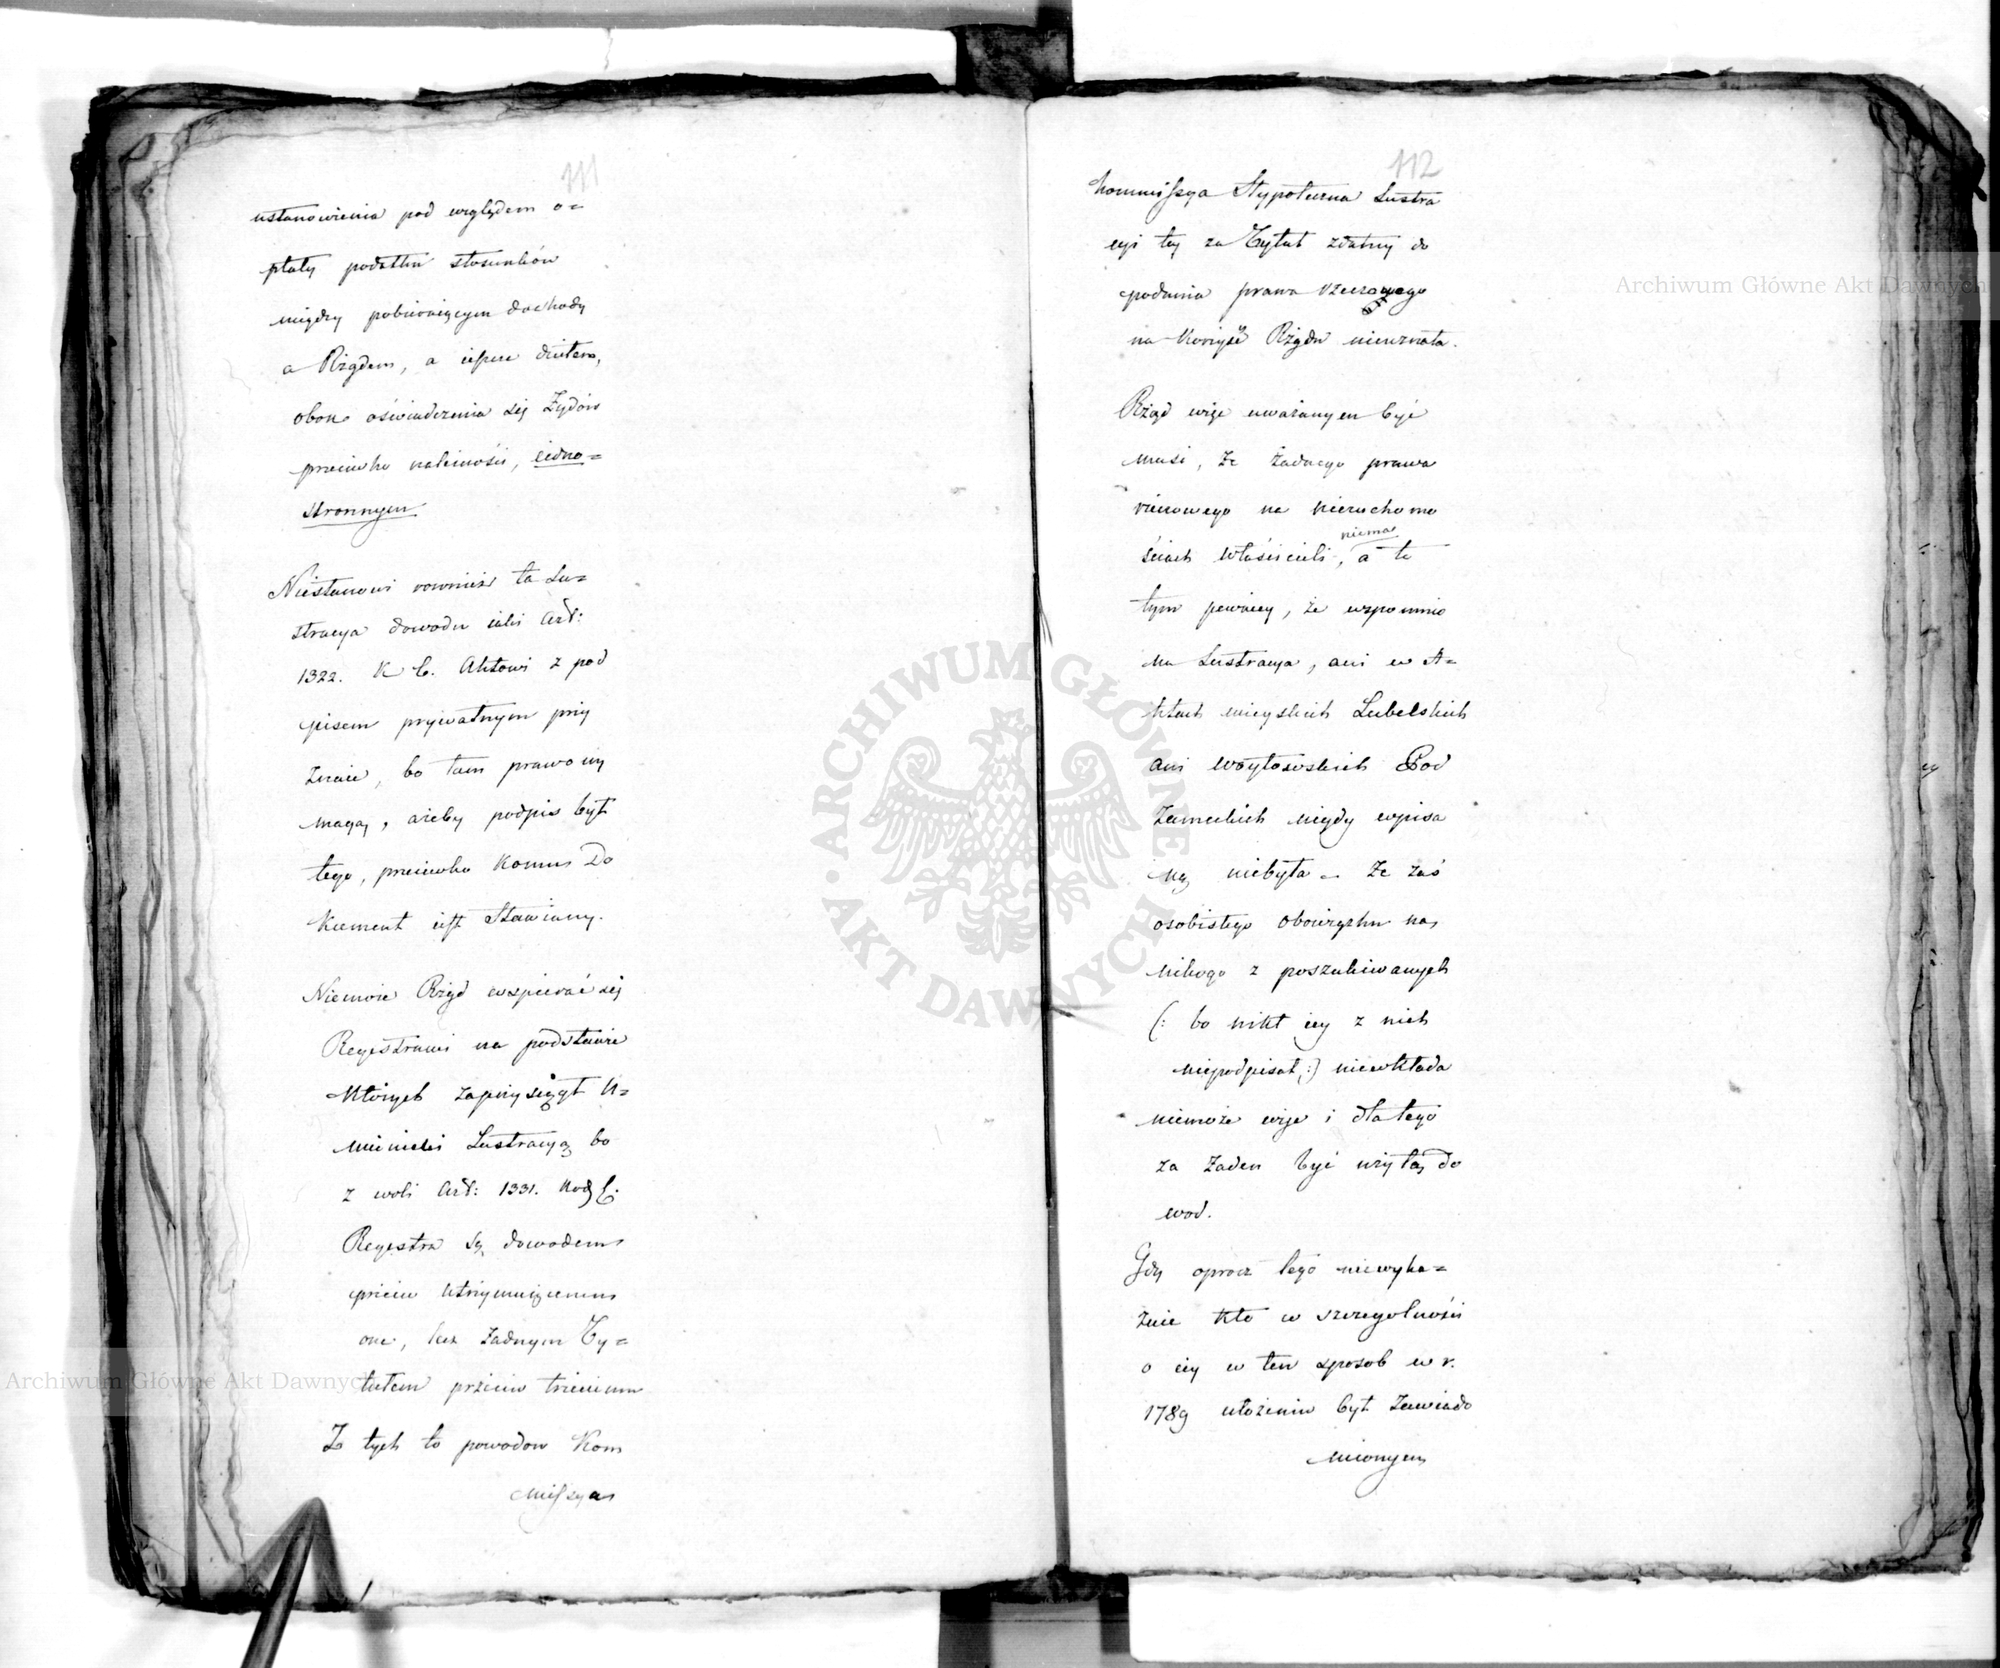 111
ustanowienia pod względem o=
płaty podatku stosunków
między pobieraiącym dochody
a Rządem, a ieszcze dziełem,
obok oświadczenia się Żydów
przeciwko należności, iedno=
stronnym
Niestanowi rownież ta Lu=
stracya dowodu iaki Art:
1322. K C. Aktowi z pod
pisem prywatnym przy
znaie, bo tam prawo wy
maga, ażeby podpis był
tego, przeciwko komu Do
kument iest Stawiany.
Niemoże Rząd wspierać się
Regestrami na podstawie
których zaprzysiągł U=
mieniecki Lustracyą bo
z woli Art: 1331. Kod C.
Regestra są dowodem
przeciw utrzymuiącemu
one, lecz żadnym Ty=
tułem przeciw trzeciemu
Z tych to powodow Kom
missya
112
Kommissya Hypoteczna Lustra
cyi tey za Tytuł zdatny do
podania prawa rzeczowego
na korzyść Rządu nieuznała.
Rząd więc uważanym być
musi, że żadnego prawa
rzeczowego na nieruchomo
ściach właścicieli, niema a to
tym pewniey, że wspomnio
na Lustracya, ani w A=
ktach mieyskich Lubelskich
ani Woytowskich Pod
Zameckich nigdy wpisa
ną niebyła. Że zaś
osobistego obowiązku na
nikogo z poszukiwanych
(: bo nikt iey z nich
niepodpisał :) niewkłada
niemoże więc i dla tego
za żaden być użytą do
wod.
Gdy oprocz tego niewyka=
zuie kto w szczegolności
o iey w ten sposob w r.
1789 ułożeniu był zawiado
mionym
ARCHIWUM GŁÓWNE AKT DAWNYCH
Archiwum Główne Akt Dawnych
Archiwum Główne Akt Dawnych